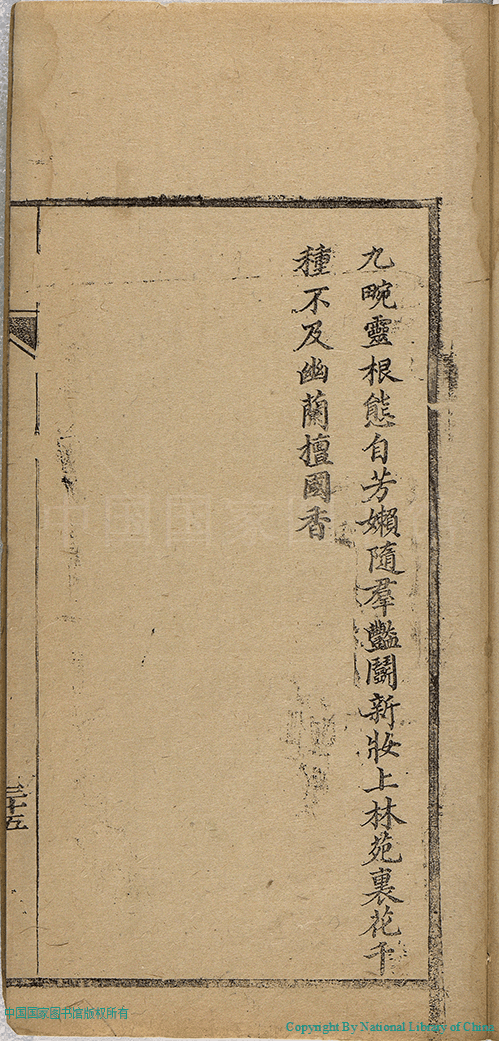 九畹靈根態自芳嬾隨羣豔鬪新妝上林苑裏花千
種不及幽蘭擅國香
三十五
中国国家图书馆版权所有
Copyright By National Library of China